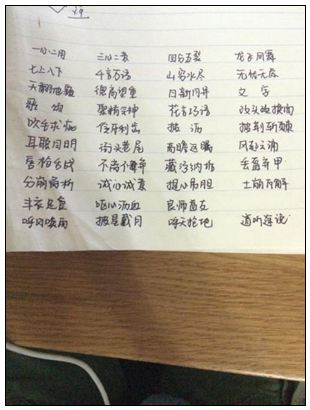 一心二用 三心二意 四分五裂 龙飞凤舞
七上八下 千言万语 山穷水尽 无忧无虑
天翻地覆 德高望重 日新月异 文字
歌颂 聚精会神 花言巧语 改头换面
吹毛求疵 伶牙利齿 披荆斩棘
耳聪目明 街头巷尾 高瞻远瞩 风起云涌
唇枪舌战 藏污纳垢 丢盔弃甲
分崩离析 诚心诚意 提心吊胆 土崩瓦解
丰衣足食 呕心沥血 良师益友
呼风唤雨 披星戴月 呼天抢地 道听途说